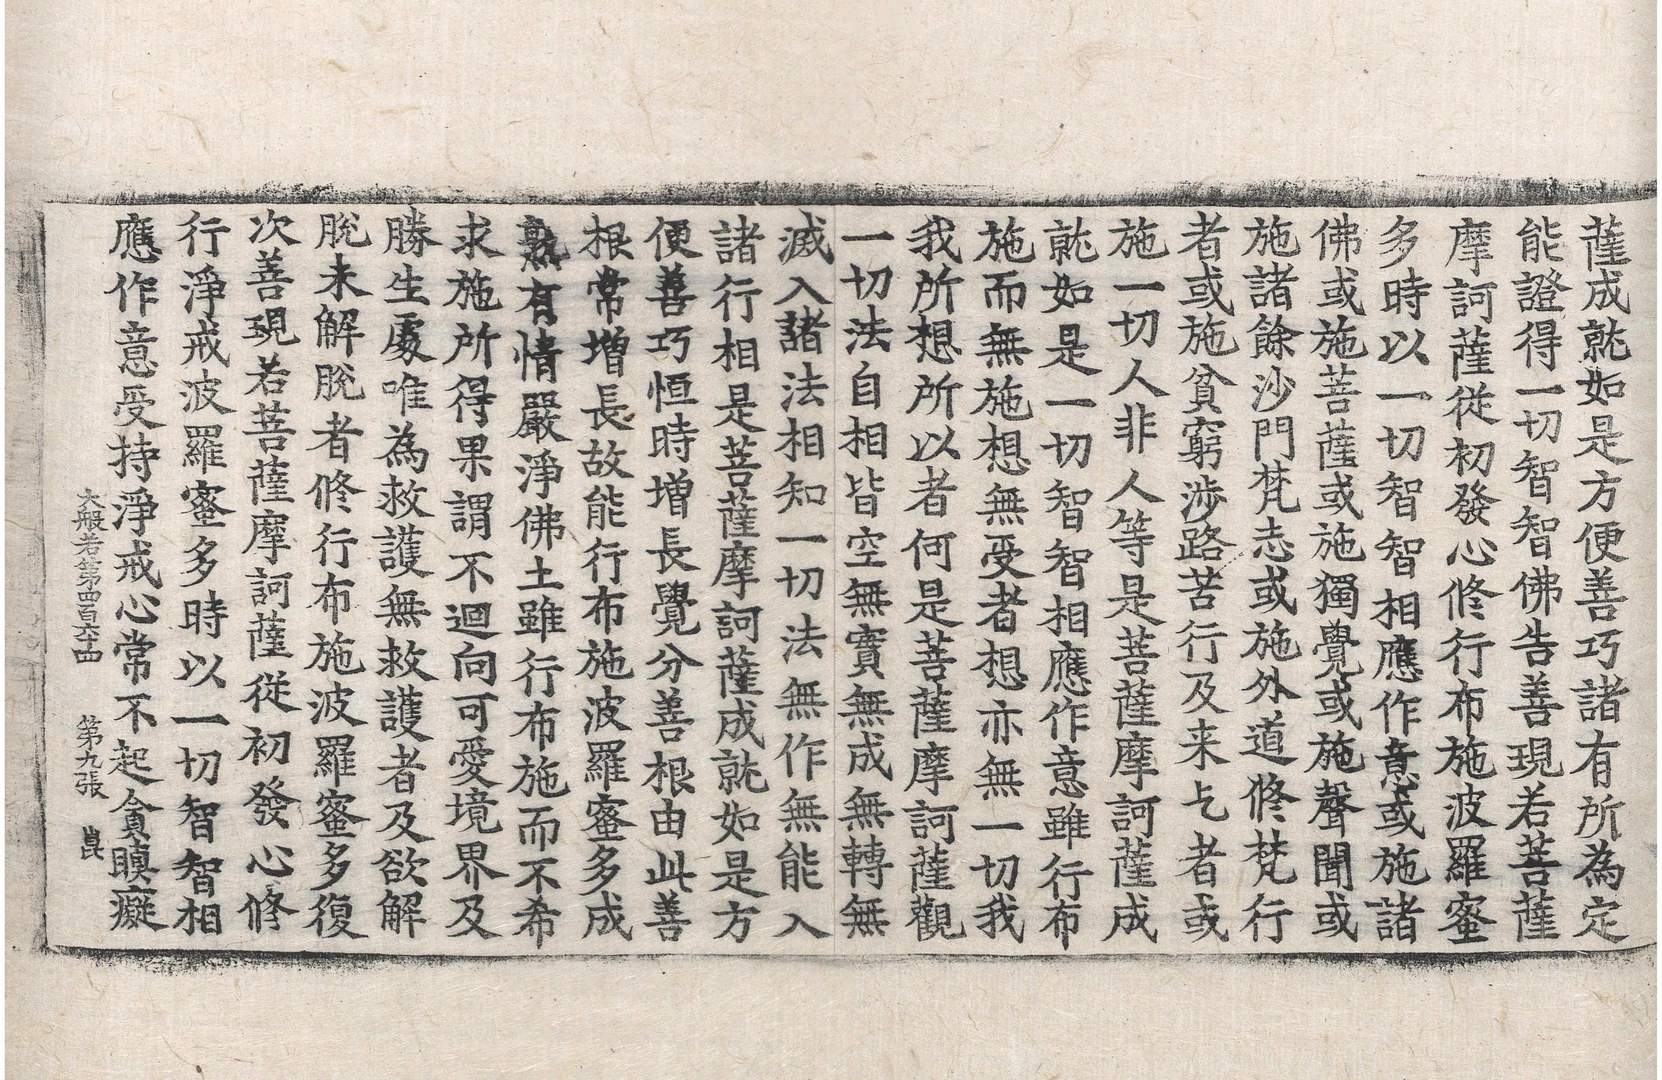 薩成就如是方便善巧諸有所為定
能證得一切智智佛告善現若菩薩
摩訶薩從初發心修行布施波羅蜜
多時以一切智智相應作意或施諸
佛或施菩薩或施獨覺或施聲聞或
施諸餘沙門梵志或施外道修梵行
者或施貧窮涉路苦行及来乞者或
施一切人非人等是菩薩摩訶薩成
就如是一切智智相應作意雖行布
施而無施想無受者想亦無一切我
我所想所以者何是菩薩摩訶薩觀
一切法自相皆空無實無成無轉無
滅入諸法相知一切法無作無能入
諸行相是菩薩摩訶薩成就如是方
便善巧恒時增長覺分善根由此善
根常增長故能行布施波羅蜜多成
熟有情嚴淨佛土雖行布施而不希
求施所得果謂不迴向可愛境界及
勝生處唯為救護無救護者及欲解
脫未解脫者修行布施波羅蜜多復
次善現若菩薩摩訶薩從初發心修
行淨戒波羅蜜多時以一切智智相
應作意受持淨戒心常不起貪瞋癡
大般若第四百六十四 第九張 崑